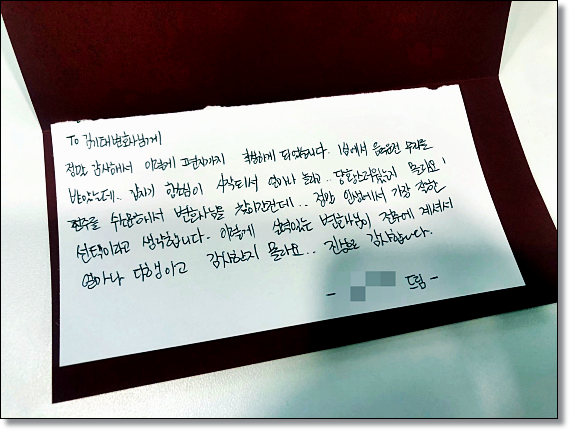 To 김기태변호사님께
정말 감사해서 이렇게 편지까지 작성하게 되었습니다. 1심에서 무죄를
받았는데.. 갑자기 항소심이 시작되서 얼마나 놀라고.. 당황스러웠는지 몰라요!
전주를 수소문해서 변호사님을 찾아간건데.. 정말 인생에서 가장 잘한
선택이라고 생각합니다. 이렇게 실력있는 변호사님이 전주에 계셔서
얼마나 다행이고 감사한지 몰라요.. 진심으로 감사합니다.
- 드림 -